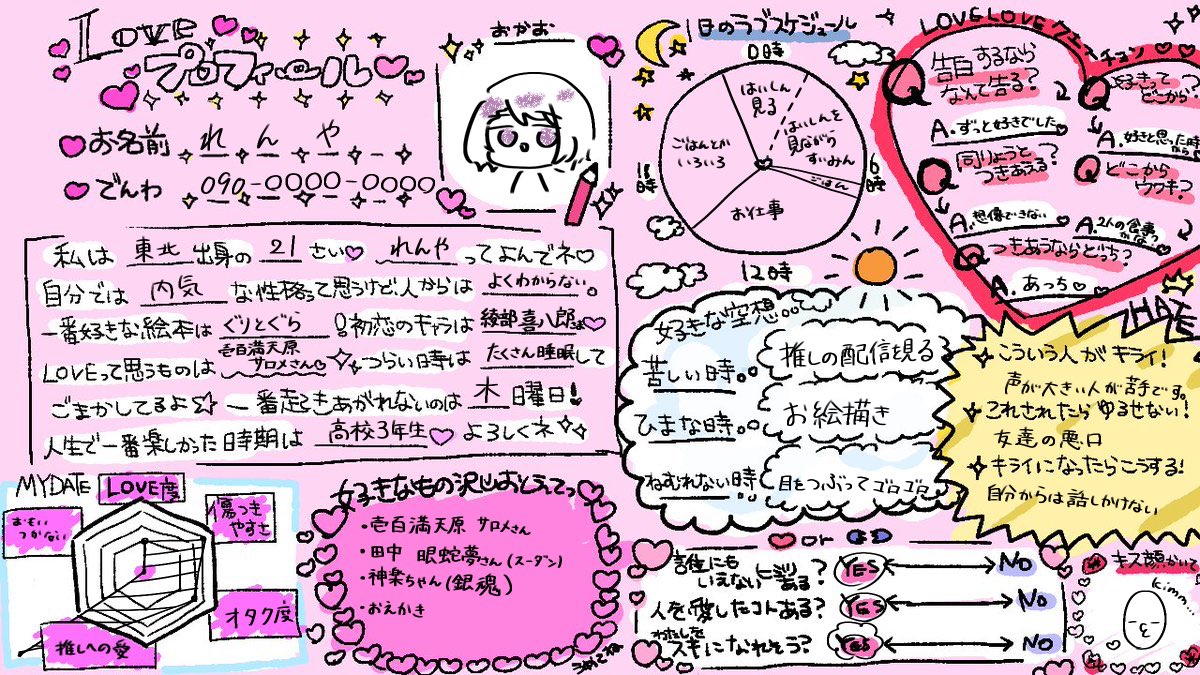 LOVE
プロフィール
お名前 れんや
でんわ 090-0000-0000
おかお
私は 東北 出身の 21 さい♡ れんや ってよんでネ♡
自分では 内気 な性格って思うけど人からは よくわからない。
一番好きな絵本は ぐりとぐら !初恋のキャラは 綾部喜八郎♡
LOVEって思うものは 壱百満天原サロメさん つらい時は たくさん睡眠 して
ごまかしてるよ☆ 一番起きあがれないのは 木 曜日!
人生で一番楽しかった時期は 高校3年生♡ よろしくネ
1日のラブスケジュール
0時
6時
12時
18時
はいしん見る
はいしんを見ながらすいみん
ごはん
お仕事
ごはんとかいろいろ
LOVELOVEクエスチョン
Q 告白するならなんて告る?
A. ずっと好きでした♡
Q 同りょうとつきあえる?
A. 想像できない♡
Q つきあうならどっち?
A. あっち♡
Q 好きってどこから?
A. 好きと思った時から
Q どこからウワキ?
A. 2人の食事っかな
好きな空想。。て
苦しい時。。 推しの配信観る
ひまな時。。 お絵描き
ねむれない時 目をつぶってゴロゴロ
HATE
こういう人がキライ!
声が大きい人が苦手です。
これされたらゆるせない!
友達の悪口
キライになったらこうする!
自分からは話しかけない
MYDATE
LOVE度
傷つきやすさ
オタク度
推しへの愛
おもいつかない
好きなもの沢山おしえてっ
・壱百満天原 サロメさん
・田中 眼蛇夢さん(スーダン)
・神楽ちゃん(銀魂)
・おえかき
or
誰にもいえないヒミツある? YES NO
人を愛したコトある? YES NO
わたしをスキになれそう? YES NO
キス顔かいて